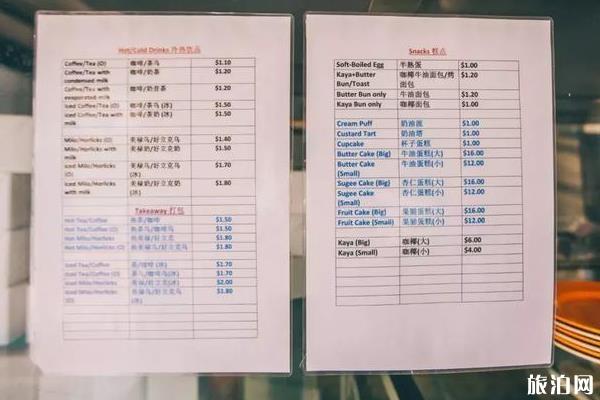 Hot/Cold Drinks 冷热饮品
Coffee/Tea (O) 咖啡/茶乌 $1.10
Coffee/Tea with 咖啡/奶茶 $1.20
condensed milk
Coffee/Tea with 咖啡/奶昔茶 $1.20
evaporated milk
Iced Coffee/Tea (O) 咖啡/茶乌 (冰) $1.50
Iced Coffee/Tea with 咖啡/奶茶 (冰) $1.50
milk
Milo/Horlicks (O) 美禄乌/好立克乌 $1.40
Milo/Horlicks with 美禄奶/好立克奶 $1.50
milk
Iced Milo/Horlicks 美禄乌/好立克乌 $1.70
(O) (冰)
Iced Milo/Horlicks 美禄奶/好立克奶 $1.80
with milk (冰)
Takeaway 打包
Hot Tea/Coffee 热茶/咖啡 $1.50
Hot Tea/Coffee (O) 热茶/咖啡乌 $1.50
Hot Milo/Horlicks 热美禄/好立克 $1.80
Hot Milo/Horlicks (O) $1.80
Iced Tea/Coffee 茶/咖啡 (冰) $1.70
Iced Tea/Coffee (O) 茶/咖啡乌(冰) $1.70
Iced Milo/Horlicks $2.00
Iced Milo/Horlicks $1.80
(O) (冰)
Snacks 糕点
Soft-Boiled Egg 半熟蛋 $1.00
Kaya+Butter 咖椰牛油面包/烤 $1.20
Bun/Toast 面包
Butter Bun only 牛油面包 $1.20
Kaya Bun only 咖椰面包 $1.00
Cream Puff 奶油泡 $1.00
Custard Tart 奶油塔 $1.00
Cupcake 杯子蛋糕 $1.00
Butter Cake (Big) 牛油蛋糕(大) $16.00
Butter Cake 牛油蛋糕(小) $12.00
(Small)
Sugee Cake (Big) 杏仁蛋糕(大) $16.00
Sugee Cake 杏仁蛋糕(小) $12.00
(Small)
Fruit Cake (Big) 果脯蛋糕(大) $16.00
Fruit Cake (Small) 果脯蛋糕(小) $12.00
Kaya (Big) 咖椰(大) $6.00
Kaya (Small) 咖椰(小) $4.00
旅泊网